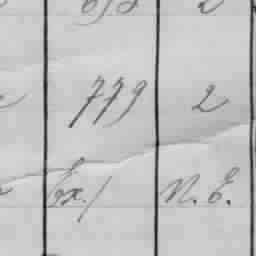 779 2
Ex./ N. E.